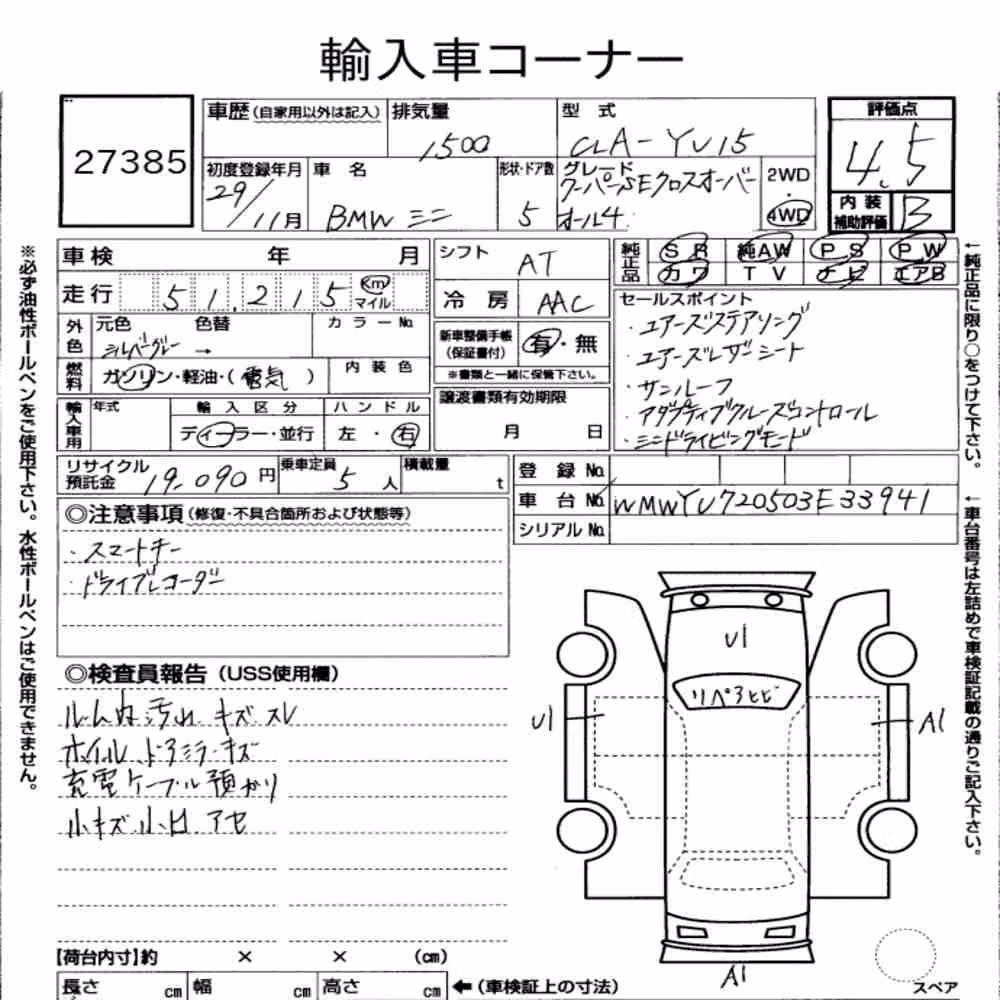 輸入車コーナー
27385
車歴 (自家用以外は記入)
排気量 1500
型式 CLA-YU15
評価点 4.5
初度登録年月 29/11月
車名 BMW ミニ
形状・ドア数 5
グレード クーパーSEクロスオーバーオール4
2WD
4WD
内装補助評価 B
車検 年 月
シフト AT
純正品 SR 純AW PS PW
カワ TV ナビ エアB
走行 51,215 km マイル
冷房 AAC
外色 元色 色替 カラーNo.
シルバーグレー →
新車整備手帳 (保証書付) 有・無
※書類と一緒に保管下さい。
燃料 ガソリン・軽油・( 電気 )
内装色
輸入車用 年式 輸入区分 ハンドル
ディーラー・並行 左・右
譲渡書類有効期限
月 日
セールスポイント
・ユアーズステアリング
・ユアーズレザーシート
・サンルーフ
・アダプティブクルーズコントロール
・ミニドライビングモード
リサイクル預託金 19.090円
乗車定員 5人
積載量 t
登録No.
車台No. WMWYU720503E33941
シリアルNo.
◎注意事項 (修復・不具合箇所および状態等)
・スマートキー
・ドライブレコーダー
◎検査員報告 (USS使用欄)
ルーム内汚れ キズ スレ
ホイル ドアミラーキズ
充電ケーブル預かり
小キズ 小凹 アセ
U1
リペアヒビ
U1
A1
A1
スペア
【荷台内寸】約 × × (cm)
長さ cm 幅 cm 高さ cm ←(車検証上の寸法)
※必ず油性ボールペンをご使用下さい。水性ボールペンはご使用できません。
←純正品に限り○をつけて下さい。
←車台番号は左詰めで車検証記載の通りご記入下さい。